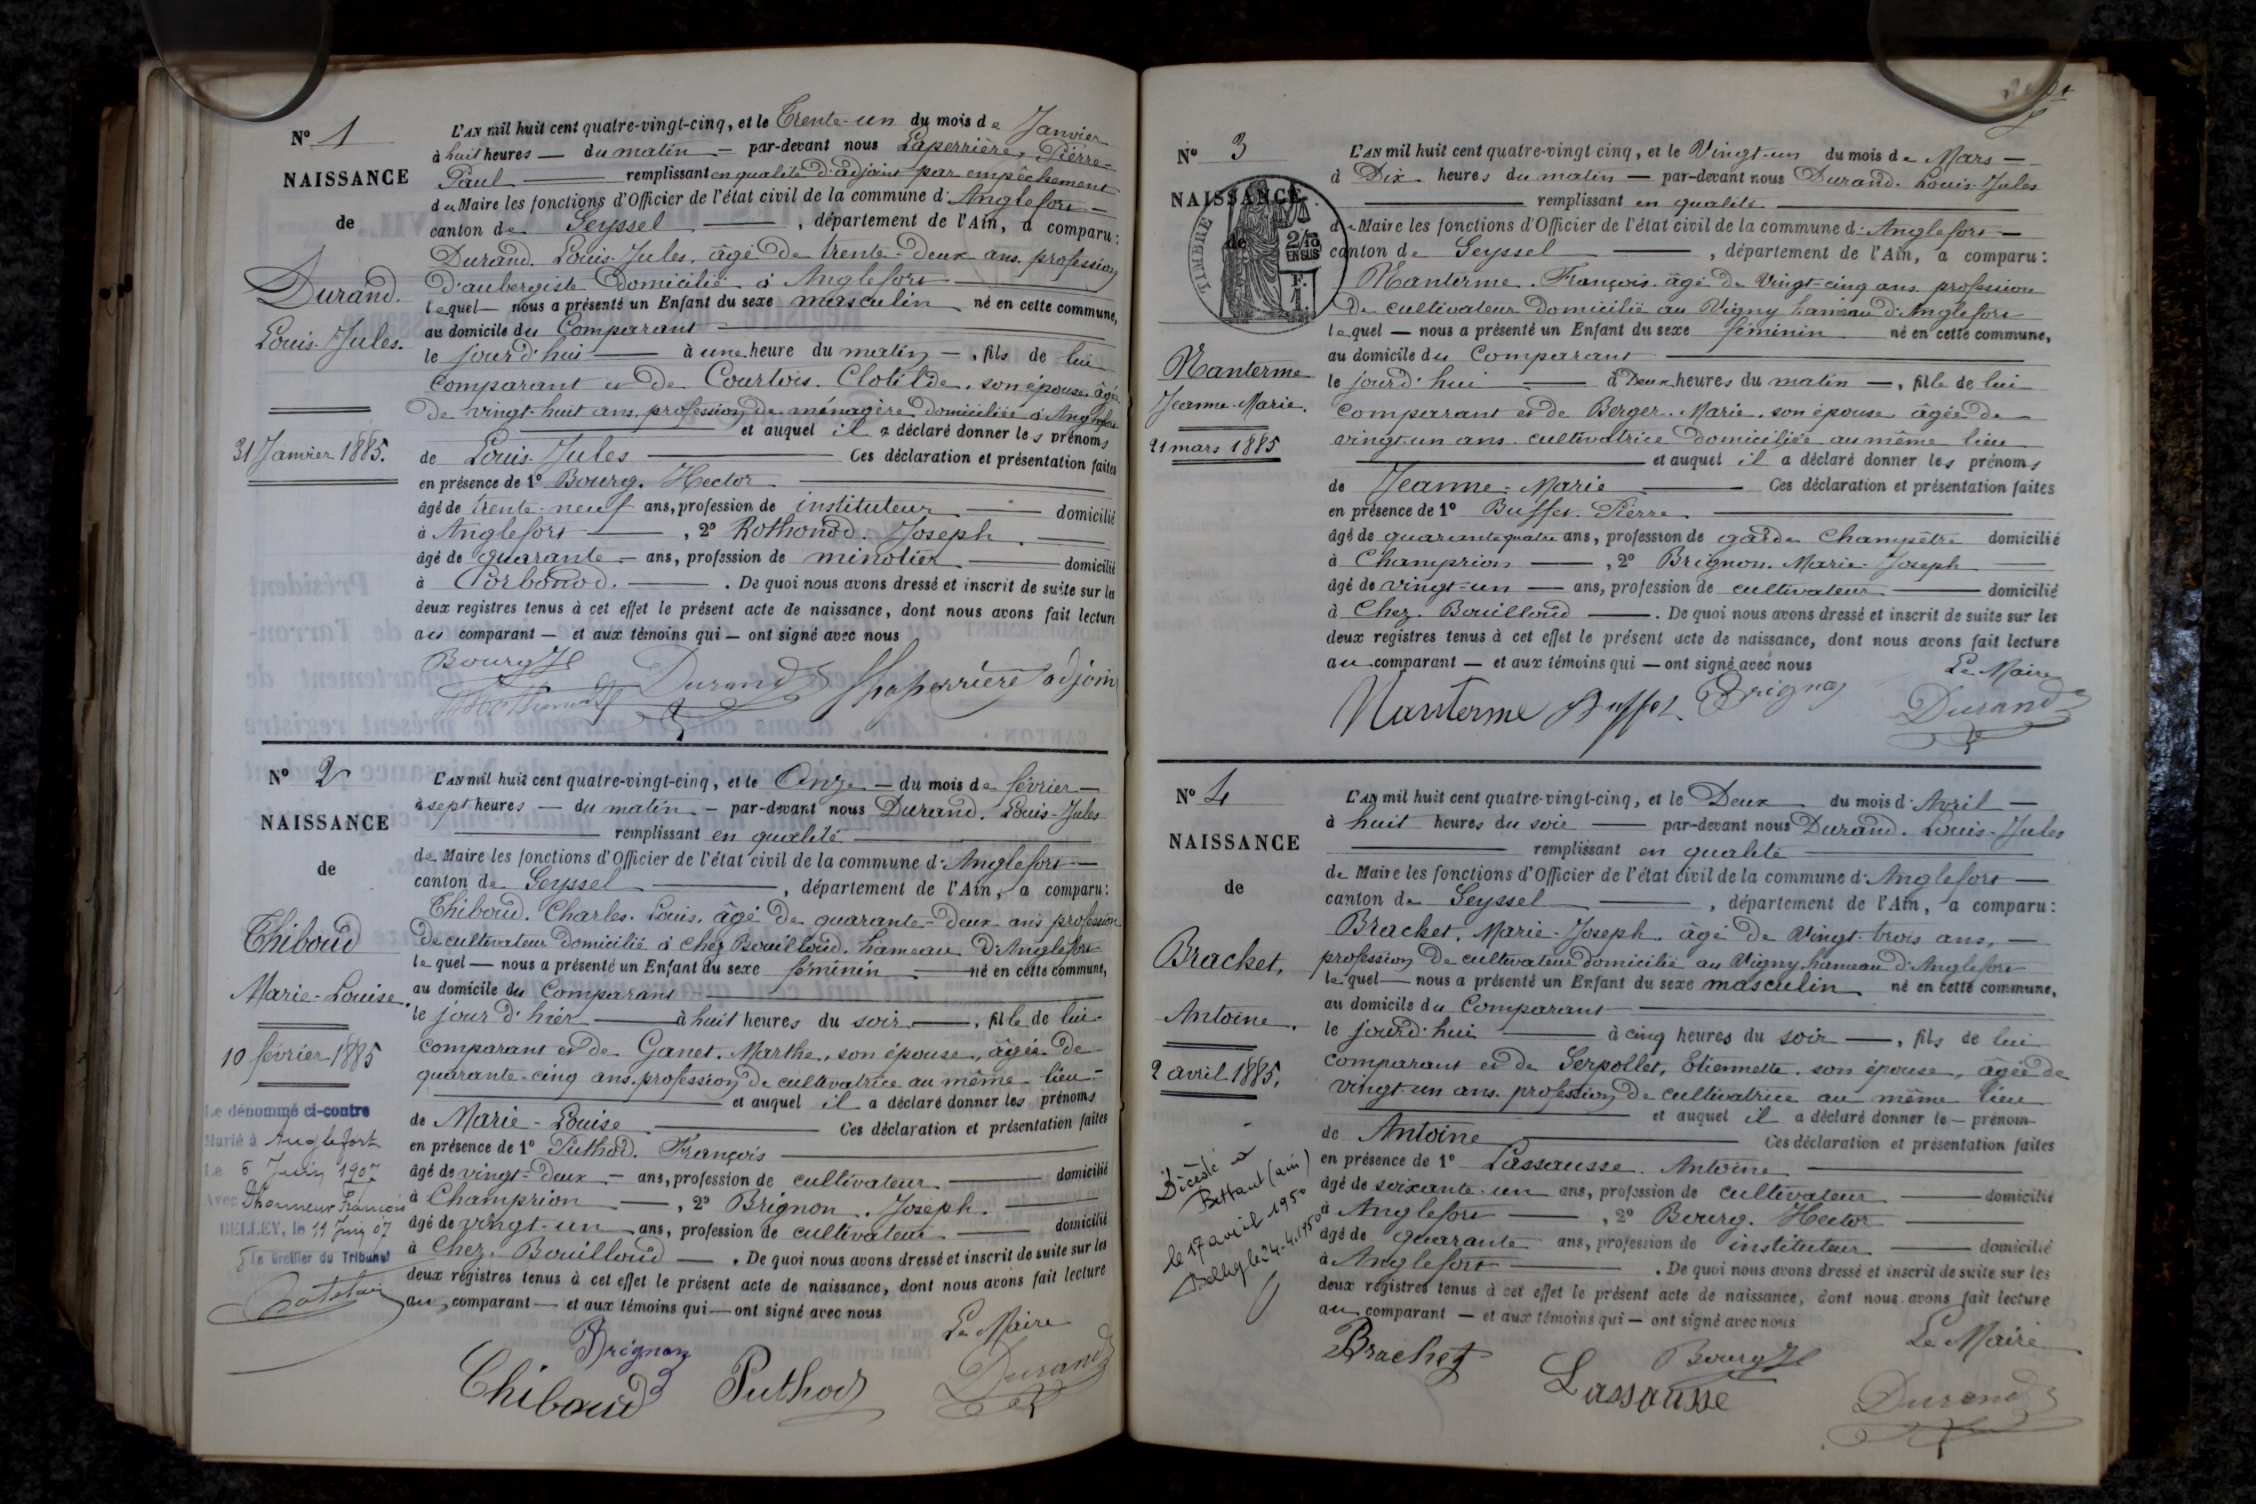 N° 1
NAISSANCE
de
Durand.
Louis-Jules.
31 Janvier 1885.
L'AN mil huit cent quatre-vingt-cinq, et le Trente-un du mois de Janvier
à huit heures — du matin — par-devant nous Laperrière, Pierre-
Paul — remplissant en qualité d'adjoint par empêchement
du Maire les fonctions d'Officier de l'état civil de la commune d'Anglefort —
canton de Seyssel —, département de l'Ain, a comparu :
Durand. Louis-Jules, âgé de trente-deux ans, profession
d'aubergiste domicilié à Anglefort
lequel — nous a présenté un Enfant du sexe masculin né en cette commune,
au domicile du Comparant
le jour d'hui — à une heure du matin —, fils de lui
comparant et de Courtois. Clotilde, son épouse, âgée
de vingt-huit ans, profession de ménagère domiciliée à Anglefort
et auquel il a déclaré donner les prénoms
de Louis-Jules — Ces déclaration et présentation faites
en présence de 1° Bourg. Hector
âgé de trente-neuf ans, profession de instituteur — domicilié
à Anglefort —, 2° Rothonod. Joseph.
âgé de quarante — ans, profession de minotier — domicilié
à Corbonod. — . De quoi nous avons dressé et inscrit de suite sur les
deux registres tenus à cet effet le présent acte de naissance, dont nous avons fait lecture
au comparant — et aux témoins qui — ont signé avec nous
Bourg H Durand Laperrière adjoint
N° 2
NAISSANCE
de
Thiboud
Marie-Louise.
10 février 1885
Le dénommé ci-contre
Marié à Anglefort
Le 6 Juin 1907
Avec Thonneur François
BELLEY, le 11 Juin 07
Le Greffier du Tribunal
L'AN mil huit cent quatre-vingt-cinq, et le Onze — du mois de février —
à sept heures — du matin — par-devant nous Durand. Louis-Jules
remplissant en qualité
de Maire les fonctions d'Officier de l'état civil de la commune d'Anglefort —
canton de Seyssel —, département de l'Ain, a comparu :
Thiboud. Charles. Louis, âgé de quarante-deux ans profession
de cultivateur domicilié à chez Bouilloud. hameau d'Anglefort
lequel — nous a présenté un Enfant du sexe féminin — né en cette commune,
au domicile du Comparant
le jour d'hier — à huit heures du soir —, fille de lui
comparant et de Ganet. Marthe, son épouse, âgée de
quarante-cinq ans, profession de cultivatrice au même lieu —
et auquel il a déclaré donner les prénoms
de Marie-Louise — Ces déclaration et présentation faites
en présence de 1° Puthod. François
âgé de vingt-deux — ans, profession de cultivateur — domicilié
à Champrion —, 2° Brignon. Joseph.
âgé de vingt-un ans, profession de cultivateur — domicilié
à Chez. Bouilloud — . De quoi nous avons dressé et inscrit de suite sur les
deux registres tenus à cet effet le présent acte de naissance, dont nous avons fait lecture
au comparant — et aux témoins qui — ont signé avec nous
Le Maire
Brignon
Thiboud Puthod Durand
N° 3
NAISSANCE
de
TIMBRE
2/10 EN SUS
Nanterme
Jeanne-Marie.
21 mars 1885
L'AN mil huit cent quatre-vingt cinq, et le Vingt-un du mois de Mars —
à Dix heures du matin — par-devant nous Durand. Louis-Jules
remplissant en qualité
de Maire les fonctions d'Officier de l'état civil de la commune d'Anglefort —
canton de Seyssel —, département de l'Ain, a comparu :
Nanterme. François. âgé de Vingt-cinq ans profession
de cultivateur domicilié au Vigny hameau d'Anglefort
lequel — nous a présenté un Enfant du sexe féminin né en cette commune,
au domicile du Comparant
le jourd'hui — à Deux heures du matin —, fille de lui
comparant et de Berger. Marie, son épouse âgée de
vingt-un ans. cultivatrice domiciliée au même lieu
et auquel il a déclaré donner les prénoms
de Jeanne-Marie — Ces déclaration et présentation faites
en présence de 1° Buffet. Pierre
âgé de quarante quatre ans, profession de garde Champêtre domicilié
à Champrion —, 2° Brignon. Marie-Joseph
âgé de vingt-un — ans, profession de cultivateur — domicilié
à Chez. Bouilloud — . De quoi nous avons dressé et inscrit de suite sur les
deux registres tenus à cet effet le présent acte de naissance, dont nous avons fait lecture
au comparant — et aux témoins qui — ont signé avec nous
Le Maire
Nanterme Buffet Brignon Durand
N° 4
NAISSANCE
de
Brachet,
Antoine.
2 avril 1885.
Décédé à
Bettant (ain)
le 17 avril 1950
L'AN mil huit cent quatre-vingt-cinq, et le Deux du mois d'Avril —
à huit heures du soir — par-devant nous Durand. Louis-Jules
remplissant en qualité
de Maire les fonctions d'Officier de l'état civil de la commune d'Anglefort —
canton de Seyssel —, département de l'Ain, a comparu :
Brachet, Marie-Joseph. âgé de Vingt-trois ans, —
profession de cultivateur domicilié au Vigny hameau d'Anglefort
lequel — nous a présenté un Enfant du sexe masculin né en cette commune,
au domicile du Comparant
le jourd'hui — à cinq heures du soir —, fils de lui
comparant et de Serpollet, Etiennette, son épouse, âgée de
vingt-un ans. profession de cultivatrice au même lieu
et auquel il a déclaré donner le — prénom
de Antoine — Ces déclaration et présentation faites
en présence de 1° Lassausse. Antoine
âgé de soixante-un ans, profession de cultivateur — domicilié
à Anglefort —, 2° Bourg. Hector
âgé de quarante ans, profession de instituteur — domicilié
à Anglefort — . De quoi nous avons dressé et inscrit de suite sur les
deux registres tenus à cet effet le présent acte de naissance, dont nous avons fait lecture
au comparant — et aux témoins qui — ont signé avec nous
Le Maire
Brachet Lassausse Bourg H Durand